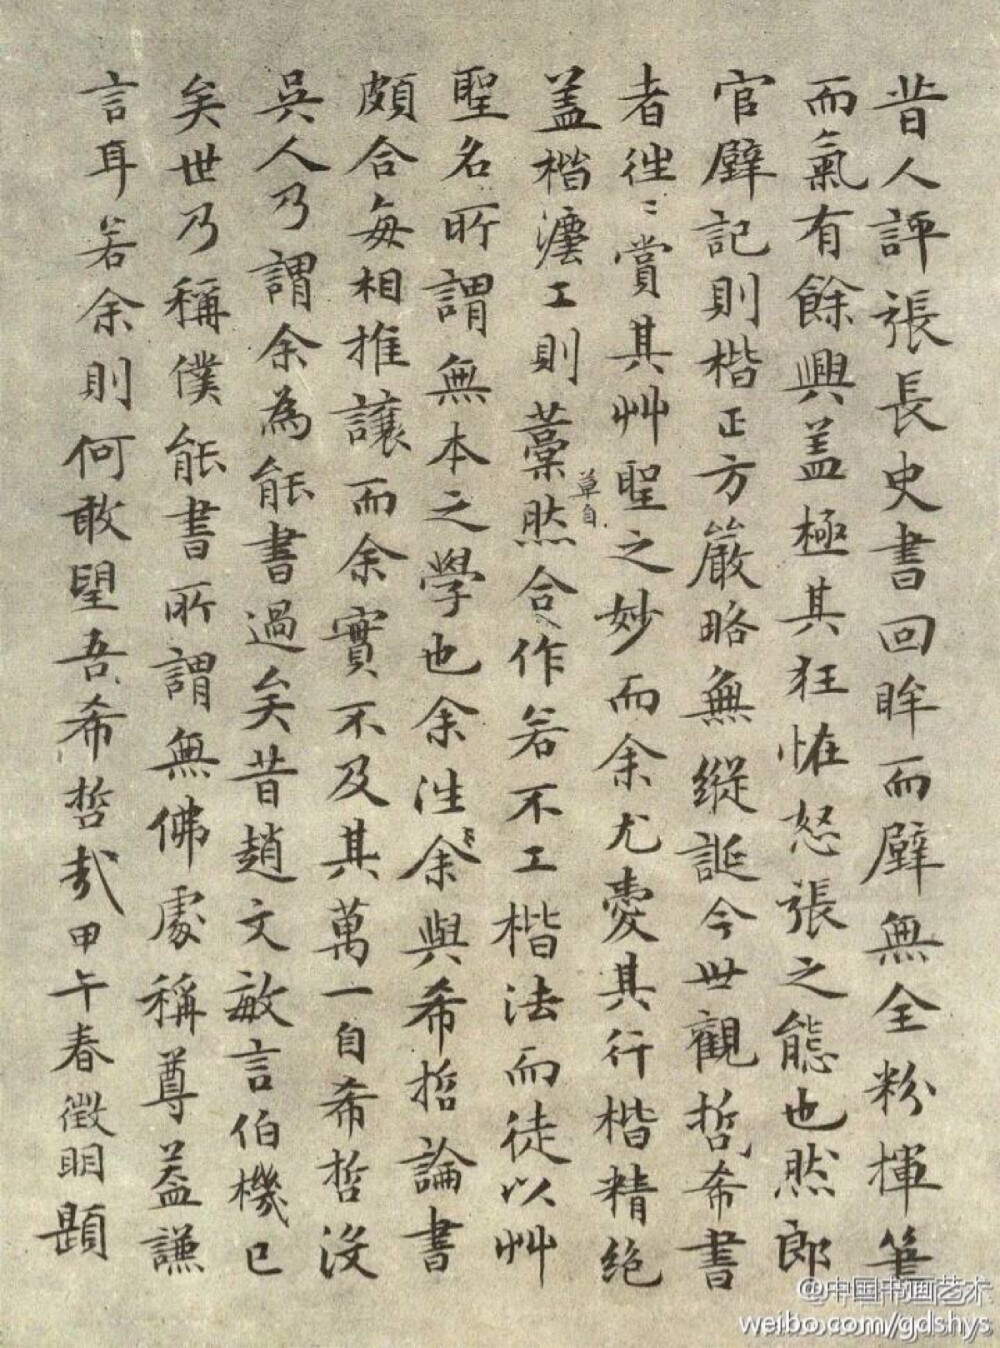 昔人評張長史書回眸而壁無全粉揮筆
而氣有餘興盖極其狂怪怒張之態也然郎
官壁記則楷正方嚴略無縱誕今世觀哲希書
者徃〻賞其艸聖之妙而余尤愛其行楷精絶
盖楷灋工則藁草自然合作若不工楷法而徒以艸
聖名所謂無本之學也余徃余與希哲論書
頗合每相推讓而余實不及其萬一自希哲沒
吳人乃謂余為能書過矣昔趙文敏言伯機已
矣世乃稱僕能書所謂無佛處稱尊益謙
言耳若余則何敢望吾希哲哉甲午春徵明題
@中国书画艺术
weibo.com/gdshys